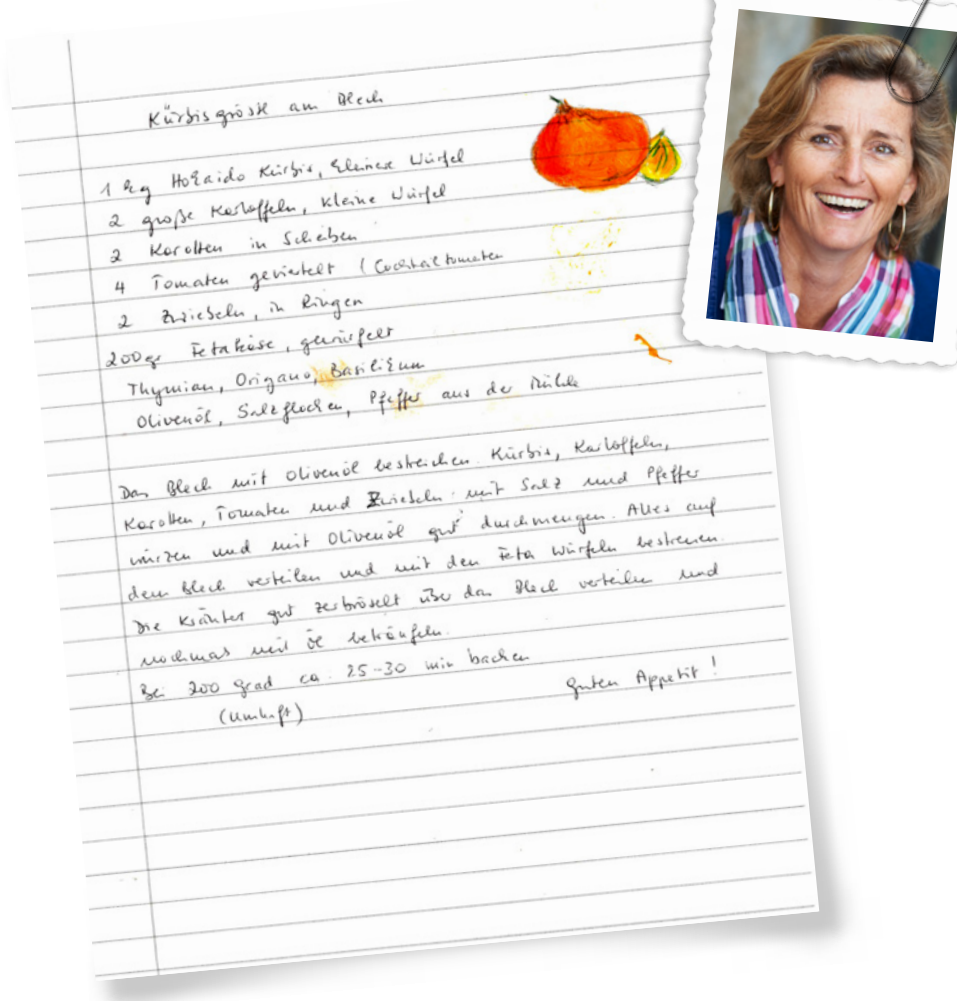 Kürbisgröstl am Blech
1 kg Hokaido Kürbis, kleine Würfel
2 große Kartoffeln, kleine Würfel
2 Karotten in Scheiben
4 Tomaten geviertelt (Cocktailtomaten
2 Zwiebeln, in Ringen
200gr Fetakäse, gewürfelt
Thymian, Origano, Basilikum
Olivenöl, Salzflocken, Pfeffer aus der Mühle
Das Blech mit Olivenöl bestreichen. Kürbis, Kartoffeln,
Karotten, Tomaten und Zwiebeln mit Salz und Pfeffer
würzen und mit Olivenöl gut durchmengen. Alles auf
dem Blech verteilen und mit den Feta Würfeln bestreuen.
Die Kräuter gut zerbröselt über das Blech verteilen und
nochmas mit Öl beträufeln.
Bei 200 Grad ca. 25-30 min backen
(Umluft)
Guten Appetit!